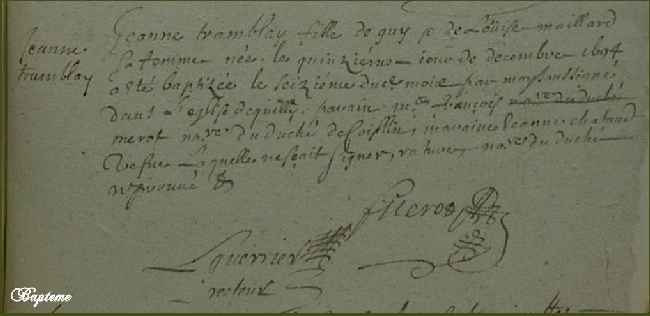 Jeanne
tramblay
Jeanne tramblay fille de guy & de Loüise maillard
sa femme née le quinziéme iour de decembre 1694
a esté baptizée le seiziéme dud moie par moy soussigné
dans l'eglise de quilly, parain me françois nore du duché
merot nore du duché de Coislin, maraine Jeanne chataud
Vefue Laquelle ne sçait signer, nore du duché
FMerot
Lguerrier
recteur
Bapteme